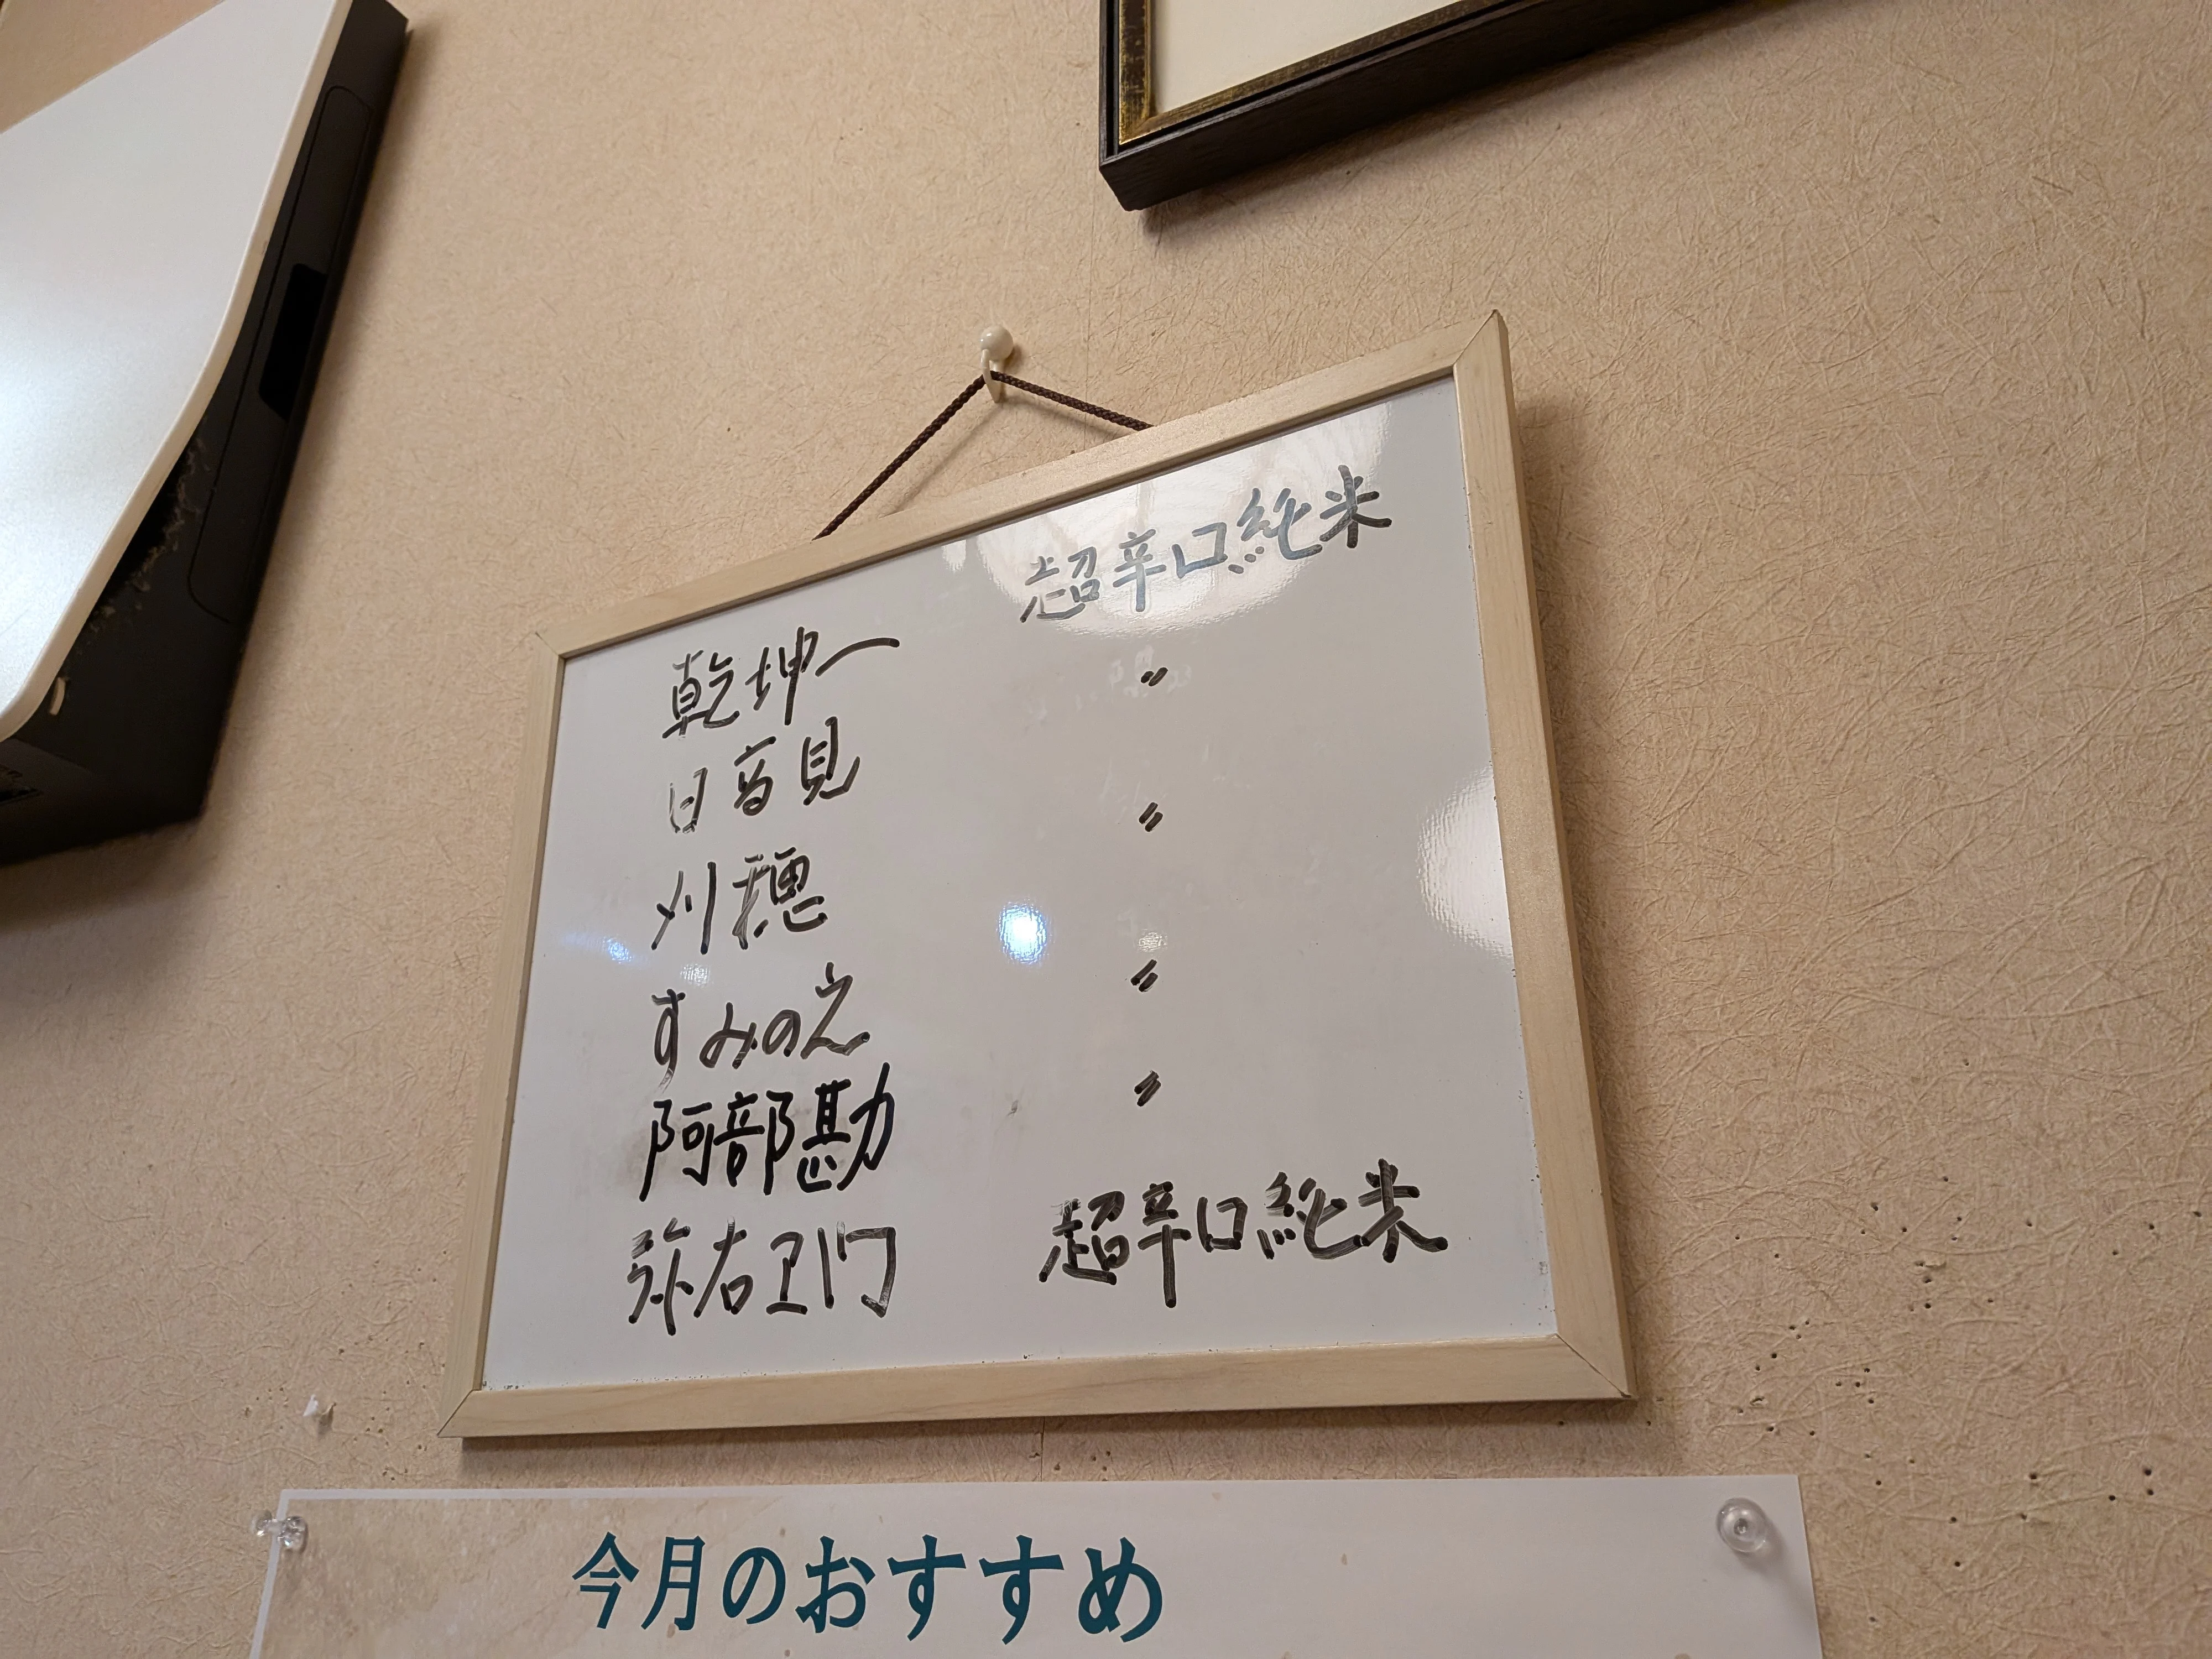 乾坤一 超辛口純米
日高見 〃
刈穂 〃
すみのえ 〃
阿部勘 〃
弥右ヱ門 超辛口純米
今月のおすすめ